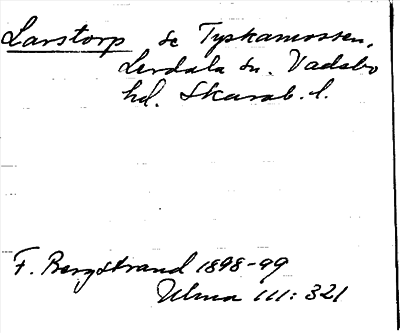 Larstorp se Tyskamossen,
Lerdala sn. Vadsbo
hd. Skarab. l.
F. Bergstrand 1898-99
Ulma 111: 321